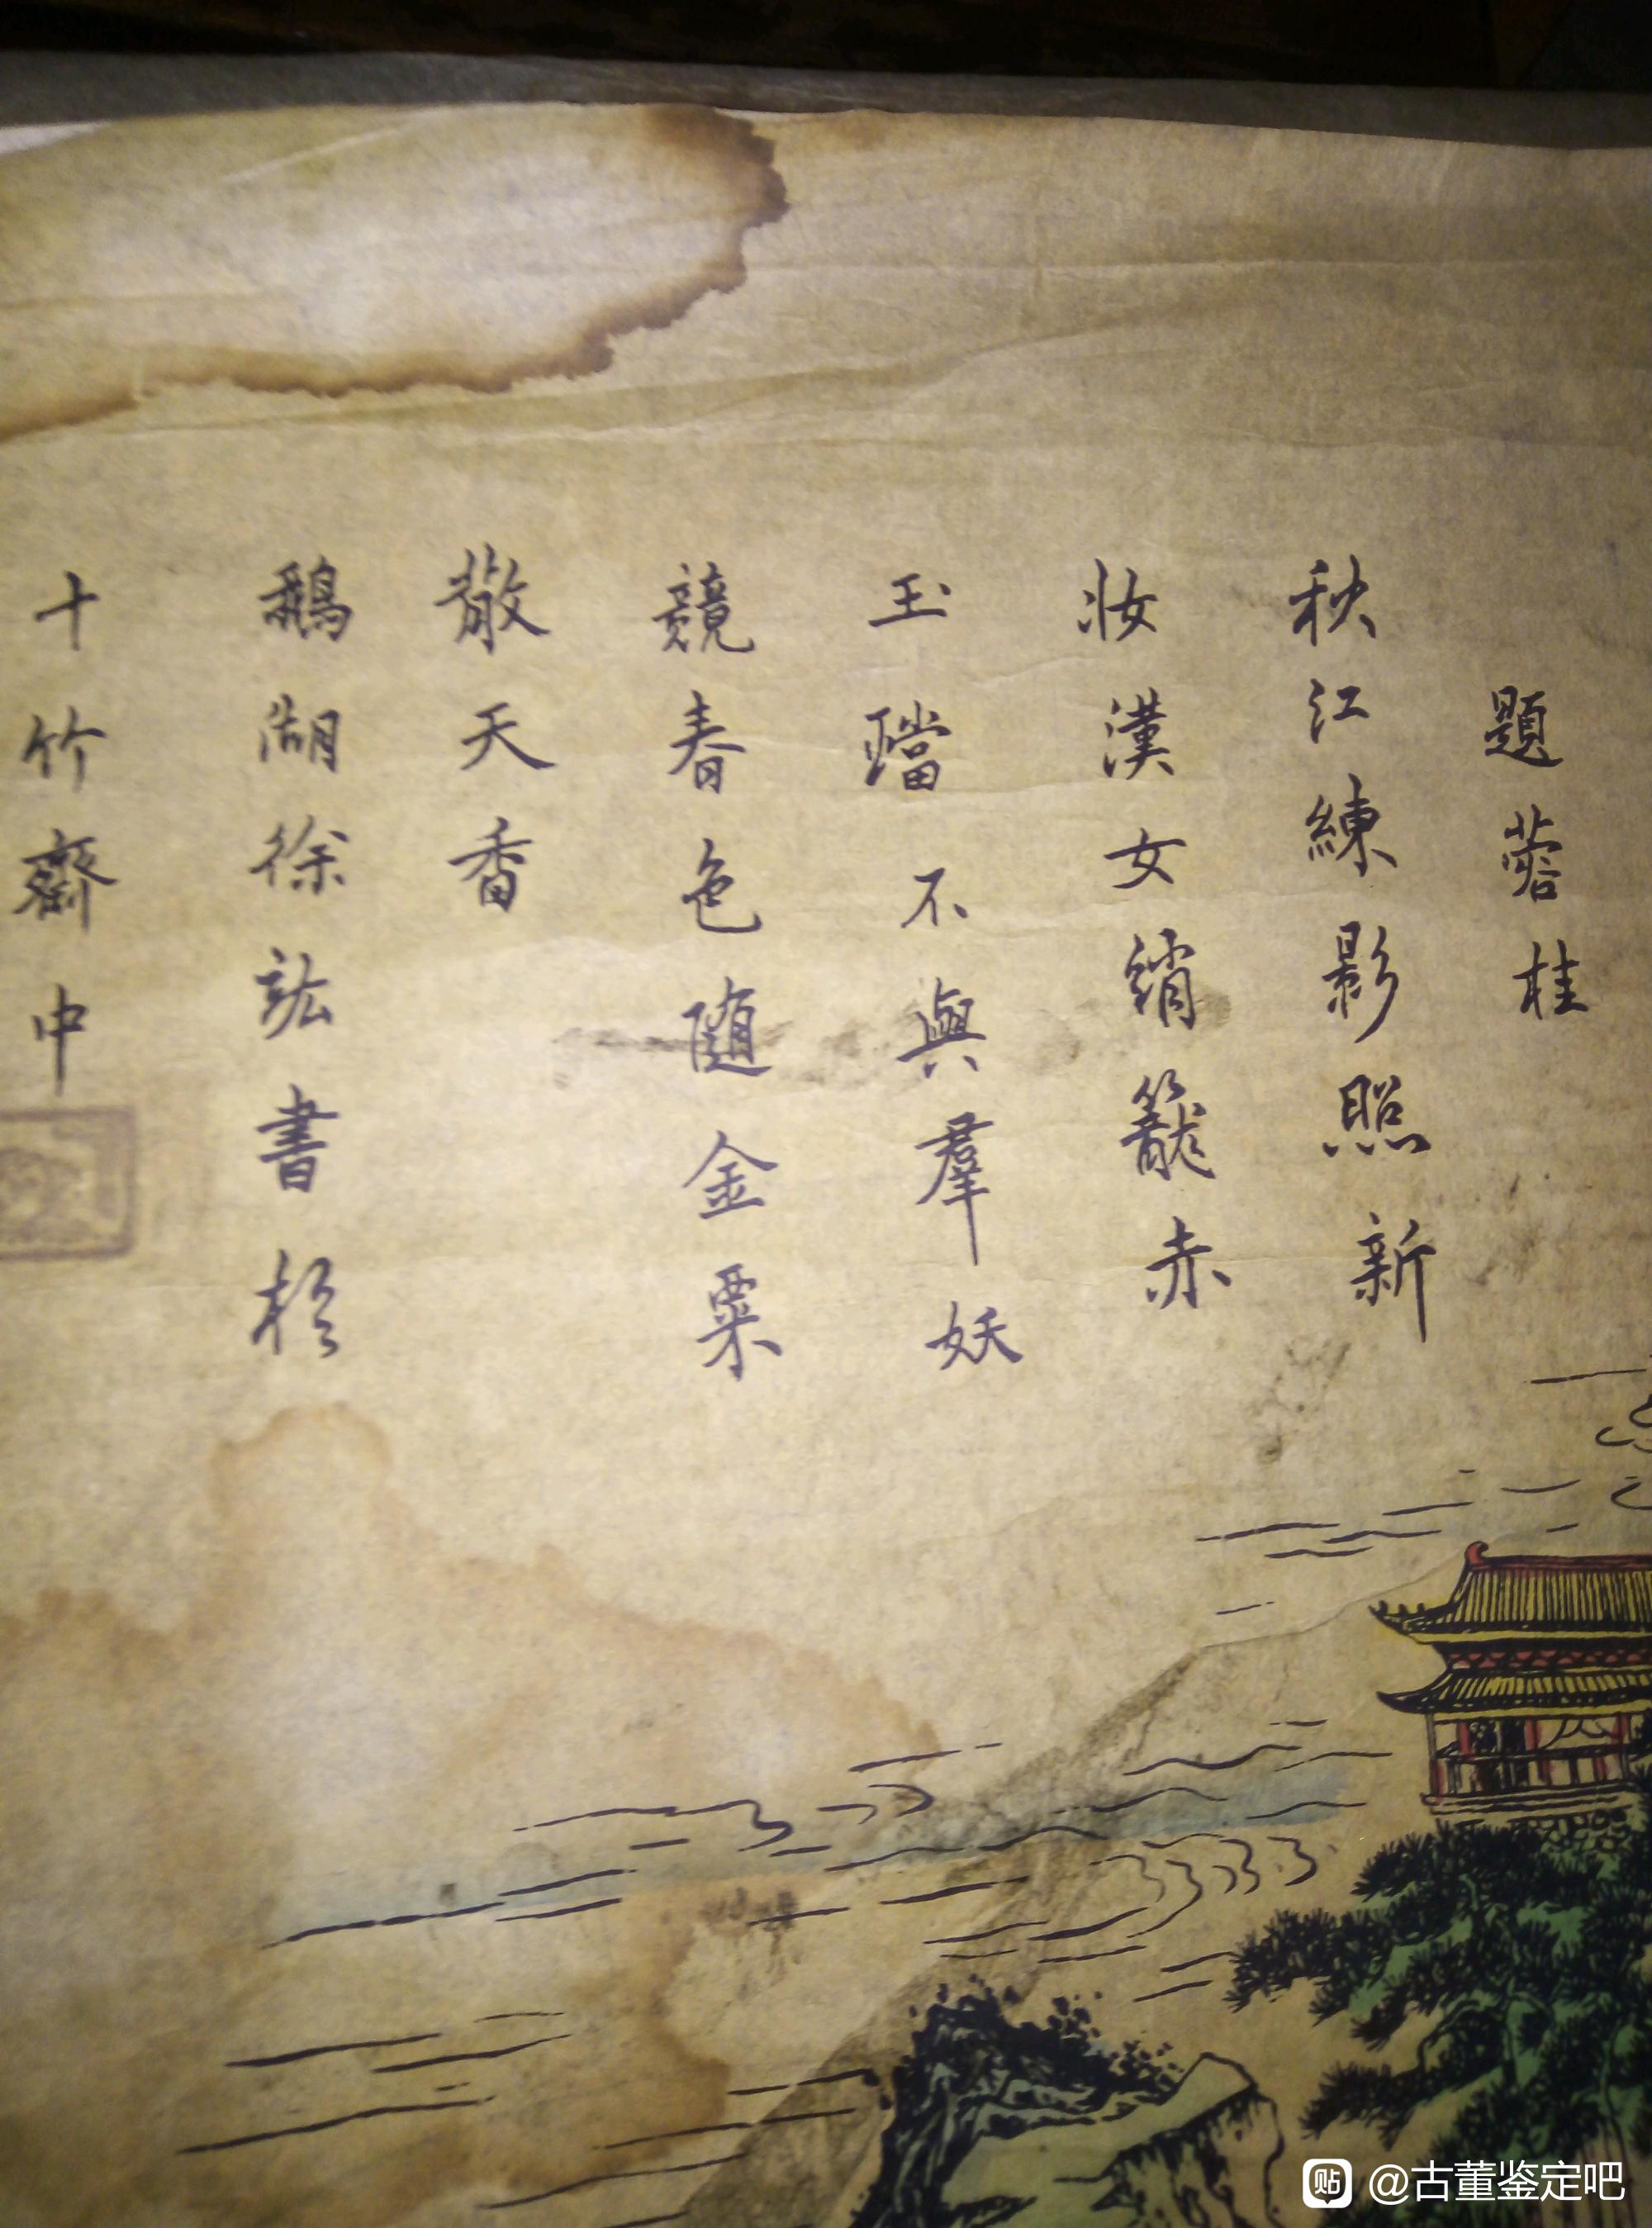 題蓉桂
秋江練影照新
妝漢女綃籠赤
玉璫不與羣妖
競春色隨金粟
散天香
鵝湖徐竑書於
十竹齋中
貼 @古董鉴定吧